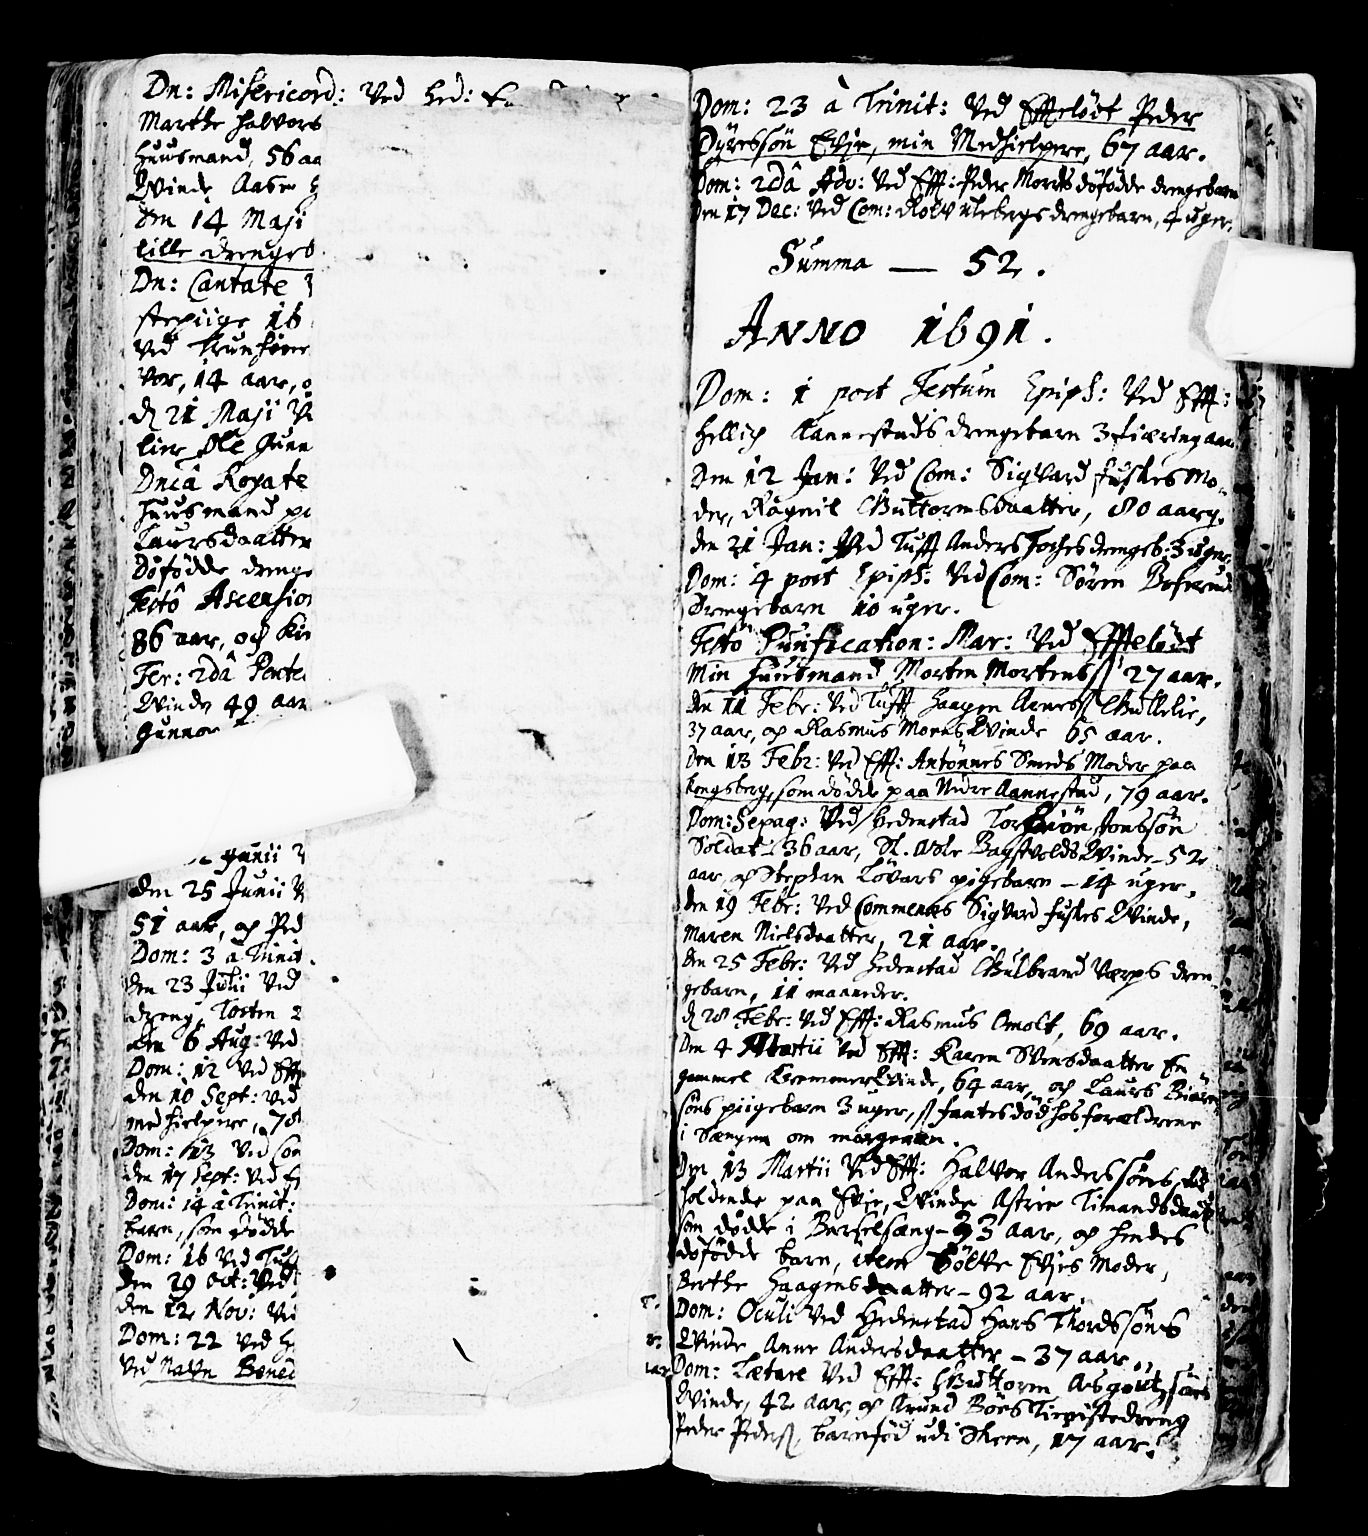 Dn: Misericord: Ved Hed:
Marthe Halvors
Huusmand, 56 aa
Qvinde Aase
den 14 Maji
lille drengeb
Dn: Cantate
stepiige 16
ved
vor, 14 aar, o
d 21 Maji V
lier Ole Gunn
Dnicâ Rogate
Huusmand p
Laursdaatter
Døfødde drenge
Festô Ascension
86 aar, och Ki
Fer: 2dâ Pente
Qvinde 49 aar
Gunnor
Junii V
den 25 Junii V
51 aar, og Ped
Dom: 3 à Trinit.
den 23 Julii Ved
dreng, Tosten 2
den 6 Aug: Ved
Dom: 12 Ved Eff
den 10 Sept: Ved
medhielpere, 78
Dom: 13 Ved Co
den 17 Sept: Ved E
Dom: 14 à Trinit:
barn, som dødde
Dom: 16 Ved Tuff
den 29 Oct: Ved
den 12 Nov: Ve
Dom: 22 Ved H
Ved Navn Bened
Dom: 23 à Trinit: Ved Efftelødt Peder
Dyressøn Evje, min Medhielpere, 67 aar.
Dom: 2dâ Adv: Ved Eff: Peder Moerds døfødde drengebarn
Den 17 Dec: Ved Com: Rolv Ulebergs drengebarn, 4 uger.
Summa — 52.
ANNO 1691.
Dom: 1 post Festum Epiph: Ved Eff:
Hellich Aannestads drengebarn 3 fiæring aar
Den 12 Jan: Ved Com: Sigvard Fuskes Mo-
der, Ragnil Guttormsdaatter, 80 aar
den 21 Jan: Ved Tuff Anders Foshes drengeb: 3 uger
Dom: 4 post Epiph: Ved Com: Søren
Drengebarn 10 uger.
Festô Purification: Mar: Ved Effteløst
Min Huusmand, Morten Mortenss 27 aar.
den 11 Febr: Ved Tuff Haagen Aaress Gullelie,
37 aar, og Rasmus Moens Qvinde 65 aar.
Den 13 Febr: Ved Eff: Antønnes Smeds Moder paa
Kongsberg, som dødde paa Nedre Aannestad, 79 aar.
Dom: Sepag: Ved Hedenstad Torbiøn Jonssøn
Soldat 36 aar, St. Ole Bagstvolds Qvinde – 52
aar, og Stephen Løvaas pigebarn – 14 uger,
den 19 Febr: Ved Commenæs Sigvard Fuskes Qvinde,
Maren Nielsdaatter, 21 aar.
den 25 Febr: Ved Hedenstad Gulbrand Værps dren-
gebarn, 11 maaneder.
d 28 Febr: Ved Eff: Rasmus Omolt, 69 aar.
Den 4 Martii Ved Eff: Karen Svensdaatter En
gammel KræmmerQvinde, 64 aar, og Laurs Biørn
søns piigebarn 3 uger, s fantes død hos forældrene
i Sængen om morgenen.
Den 13 Martii Ved Eff: Halvor Anderssøns, til
holdende paa Evje, Qvinde Astrie Timandsdaatt
som dødde i Barselsæng – 33 aar, og hendes
døfødde barn, item Tølve Evjes Moder,
Berthe Haagensdaatter – 92 aar.
Dom: Oculi Ved Hedenstad Hans Thordssøns
Qvinde Anne Andersdaatter – 37 aar.
Dom: Lætare Ved Eff: Guttorm Asgoutssøns
Qvinde, 42 aar, og Trund Bøes Tienistedreng
Peder Peders barnfød udi Skeen, 17 aar.